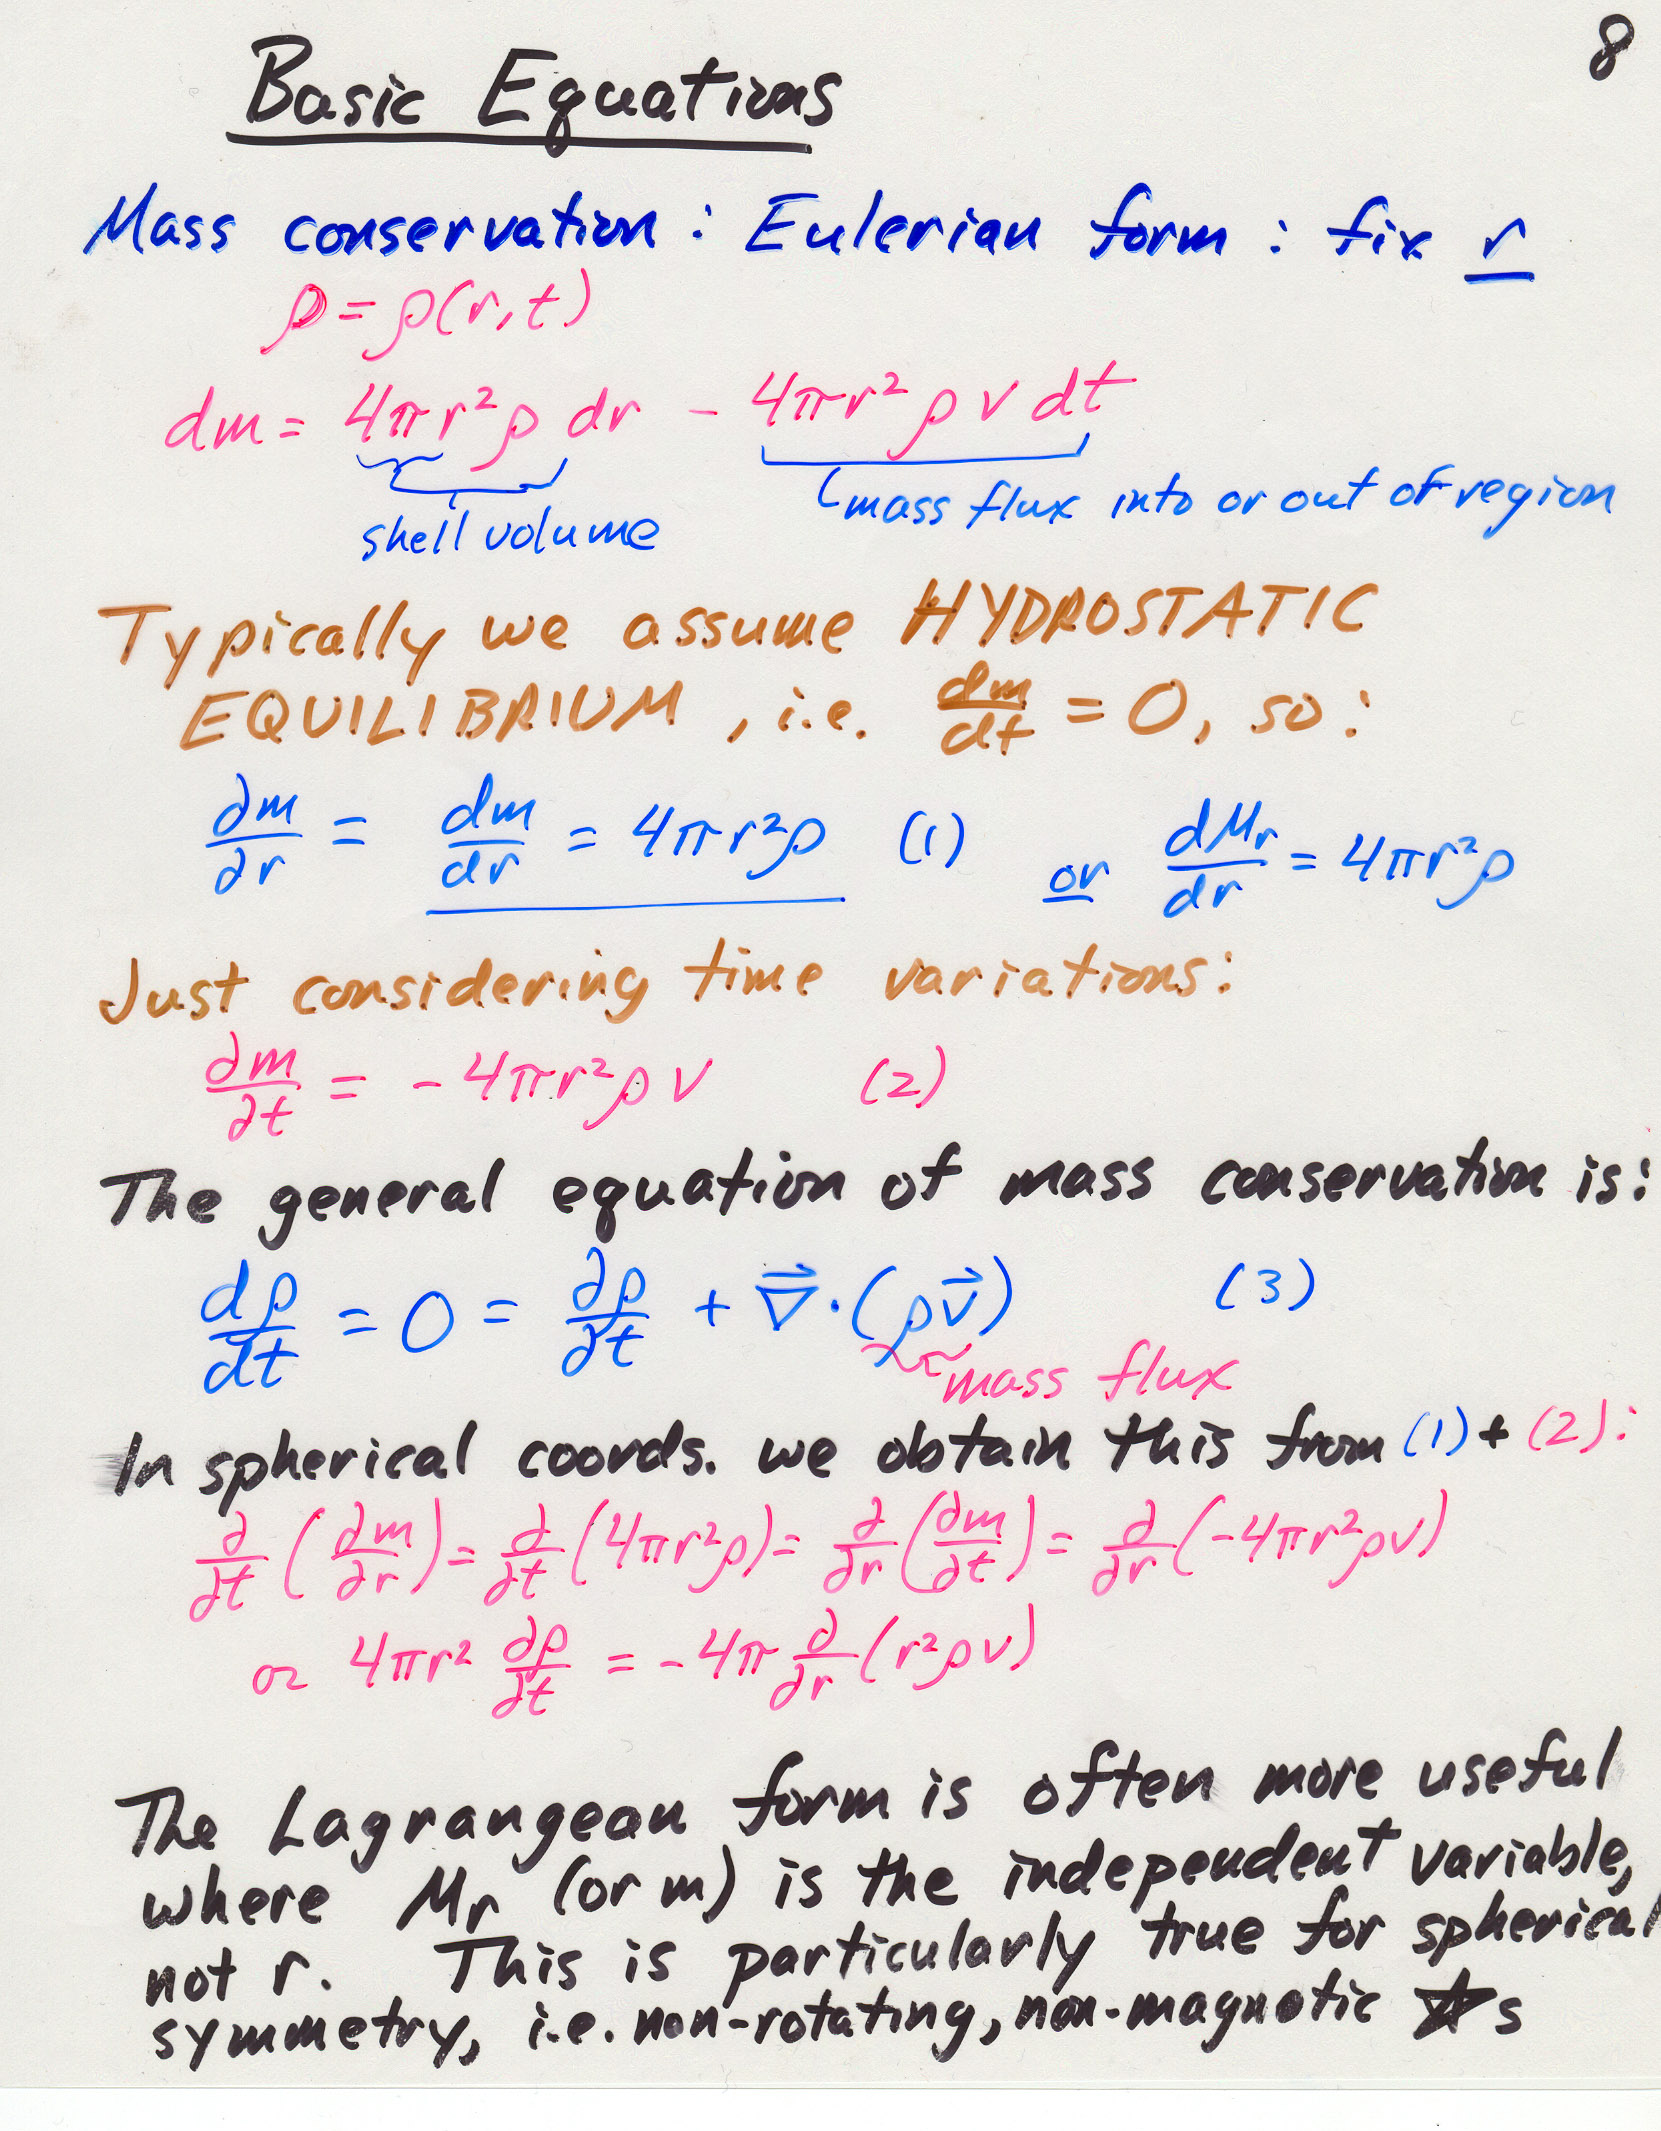 8
Basic Equations
Mass conservation: Eulerian form: fix r
ρ = ρ(r,t)
dm = 4πr²ρ dr - 4πr² ρ v dt
shell volume
mass flux into or out of region
Typically we assume HYDROSTATIC
EQUILIBRIUM, i.e. dm/dt = 0, so:
∂m/∂r = dm/dr = 4πr²ρ (1) or dMr/dr = 4πr²ρ
Just considering time variations:
∂m/∂t = - 4πr²ρ v (2)
The general equation of mass conservation is:
dρ/dt = 0 = ∂ρ/∂t + ∇⃗·(ρv⃗) (3)
mass flux
In spherical coords. we obtain this from (1) + (2):
∂/∂t (∂m/∂r) = ∂/∂t (4πr²ρ) = ∂/∂r (∂m/∂t) = ∂/∂r (-4πr²ρv)
or 4πr² ∂ρ/∂t = -4π ∂/∂r (r²ρv)
The Lagrangean form is often more useful
where Mr (or m) is the independent variable,
not r. This is particularly true for spherical
symmetry, i.e. non-rotating, non-magnetic ☆s